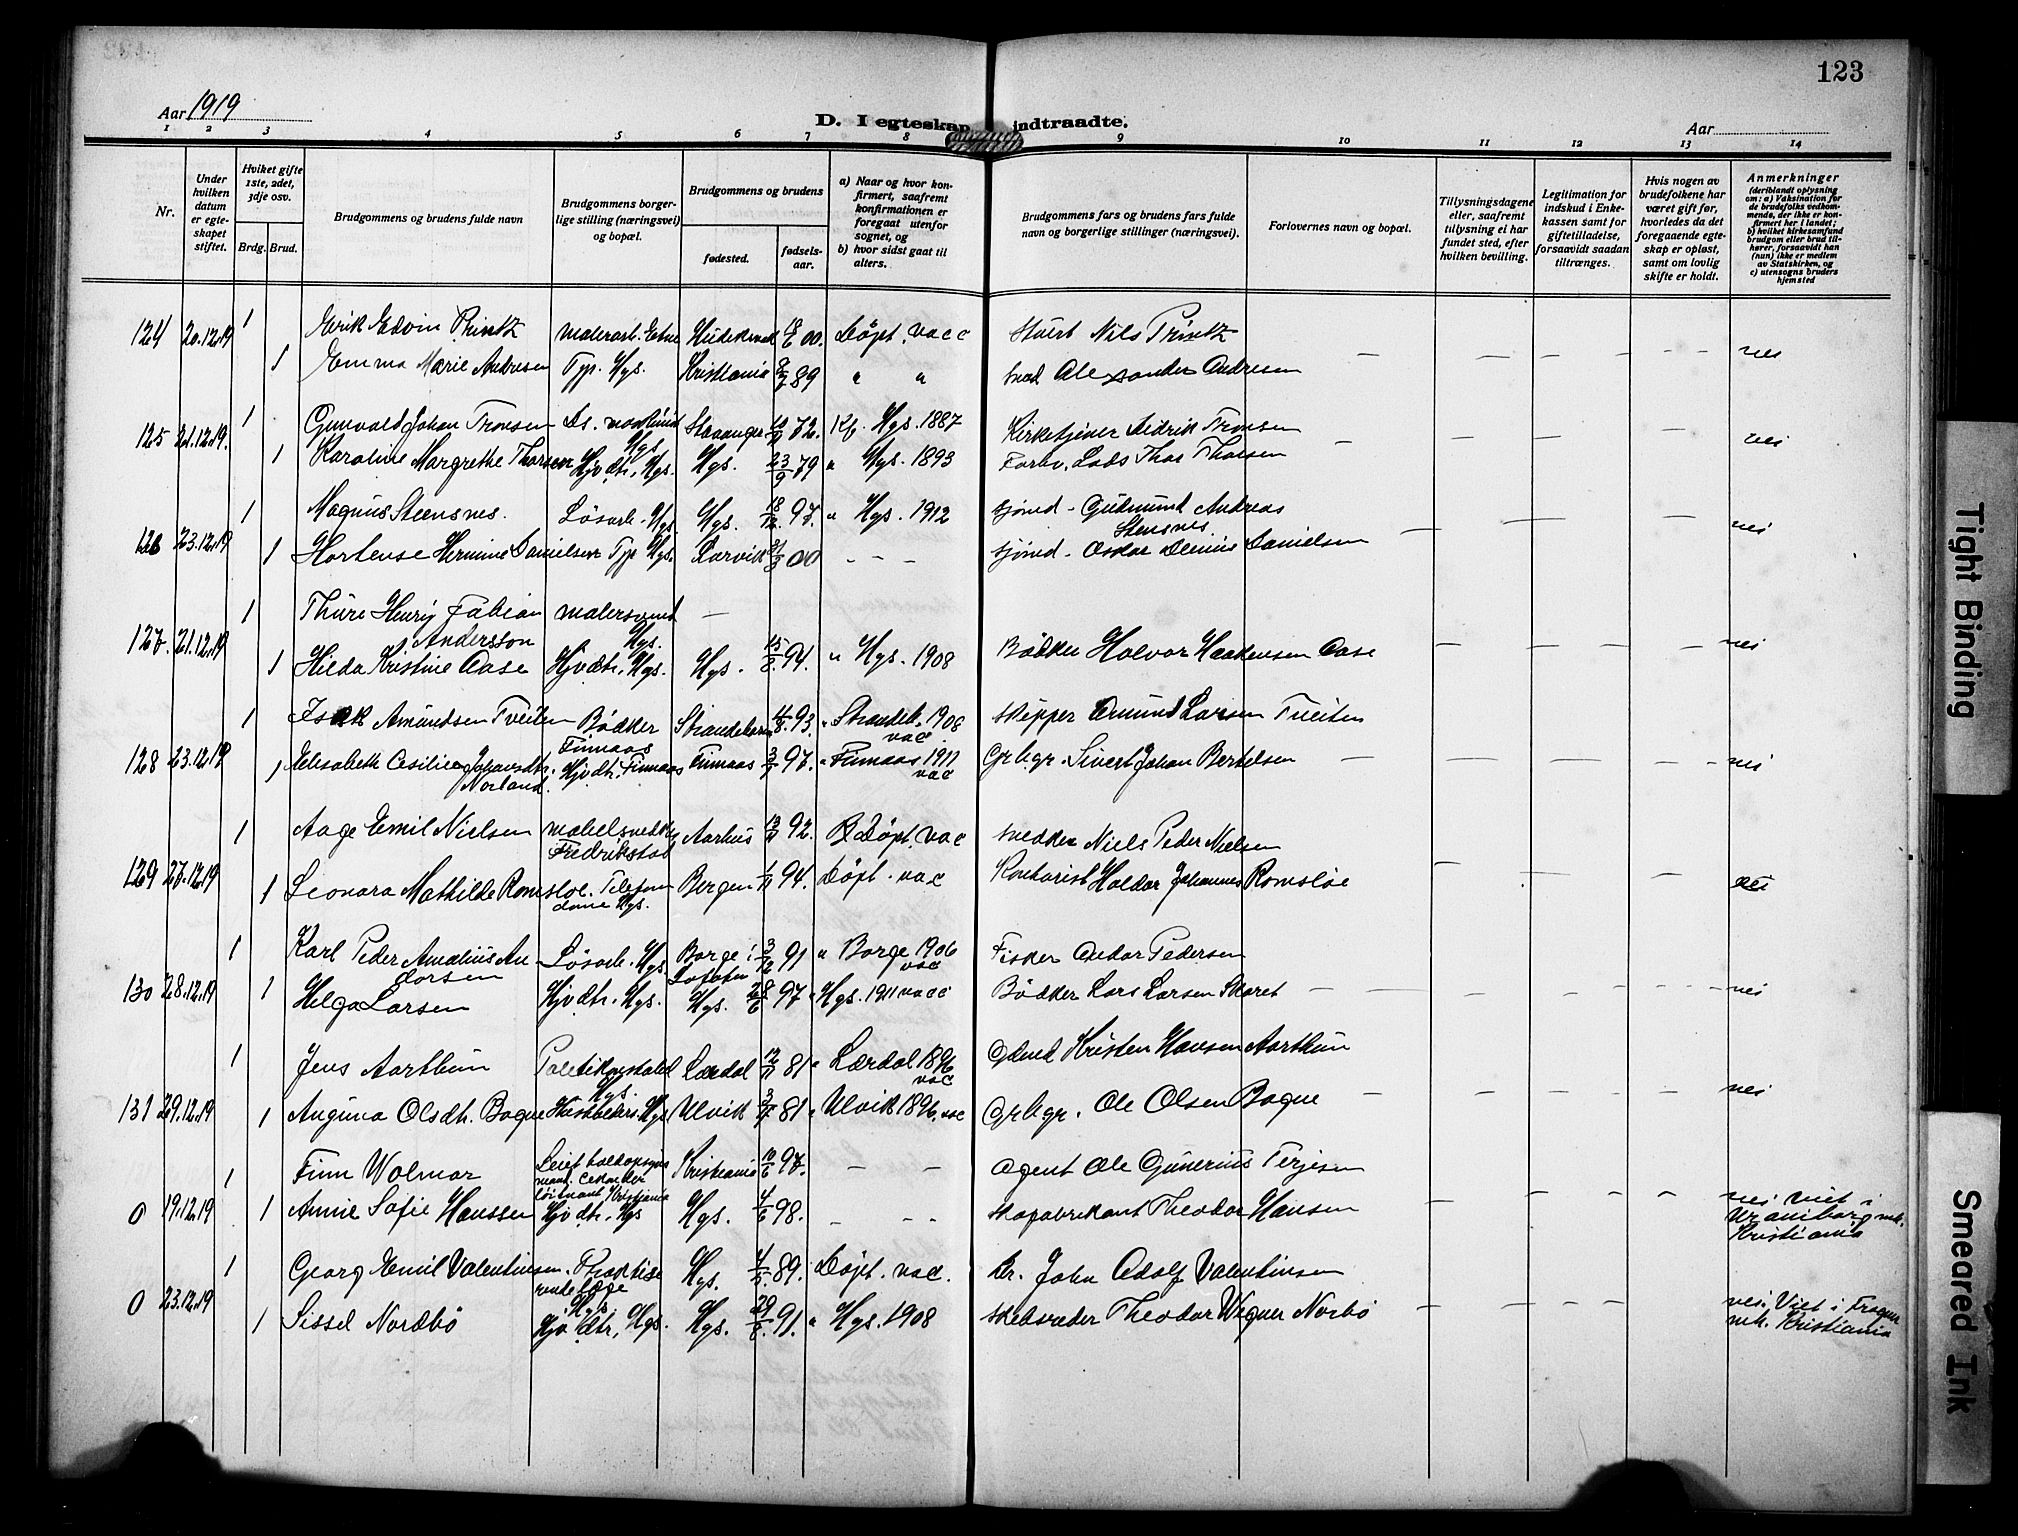 123
Aar 1919
D. I egteskap indtraadte.
Aar
1 2 3 4 5 6 7 8 9 10 11 12 13 14
Nr.
Under hvilken datum er egteskapet stiftet.
Hviket gifte 1ste, 2det, 3dje osv.
Brdg. Brud.
Brudgommens og brudens fulde navn
Brudgommens borgerlige stilling (næringsvei) og bopæl.
Brudgommens og brudens
fødested.
fødsels-aar.
a) Naar og hvor konfirmert, saafremt konfirmationen er foregaat utenfor sognet, og
b) hvor sidst gaat til alters.
Brudgommens fars og brudens fars fulde navn og borgerlige stillinger (næringsvei).
Forlovernes navn og bopæl.
Tillysningsdagene eller, saafremt tillysning ei har fundet sted, efter hvilken bevilling.
Legitimation for indskud i Enkekassen samt for giftetilladelse, forsaavidt saadan tiltrænges.
Hvis nogen av brudefolkene har været gift før, hvorledes da det foregaaende egteskap er opløst, samt om lovlig skifte er holdt.
Anmerkninger
(deriblandt oplysning om: a) Vaksination for de brudefolks vedkommende, der ikke er konfirmert her i landet; b) hvilket kirkesamfund brudgom eller brud tilhører, forsaavidt han (nun) ikke er medlem av Statskirken, og c) utensogns bruders hjemsted
124 20.12.19 1 Erik Edvin Printz malerarb. Etne 18/6 00. Døpt. vacc Nils Printz
1 Emma Marie Andresen Typ. Hgs. Kristiania 8/7 89 " " Alexander Andresen — — — — nei
125 21.12.19. 1 Gunvald Johan Tronsen Ds. maskinist Hgs. Stavanger 72. Kf. Hgs. 1887 Kirketjener Didrik Tronsen
1 Karoline Margrethe Thorsen Hjvdtr. Hgs. Hgs. 23/9 79 " Hgs. 1893 Forhv. Lods Thor Thorsen — — — — nei
126 23.12.19 1 Magnus Steensnes. Løsarb. Hgs Hgs. 18/12 97. " Hgs. 1912 Sjømd. Gudmund Andreas Stensnes
1 Hortense Hermine Danielsen Typ Hgs. Larvik 00 — — — Sjømd. Oskar Danielsen — — — nei
127. 21.12.19 1 Thure Henry Fabian Andersson malersvend Hgs. —
1 Hilda Kristine Aase Hjvdtr. Hgs. Hgs. 15/8 94. " Hgs. 1908 Bødker Halvor Haakensen Aase — — — — nei
128 23.12.19 1 Isak Amundsen Tveiten Bødker Finnaas Strandebarm 4/8. 93. " Strandeb. 1908 vac Skipper Amund Larsen Tveiten
1 Elisabeth Cesilie Johansdtr. Norland. Hjvdtr. Finnaas Finnaas 97. " Finnaas 1911 vac Grbgr. Sivert Johan Bertelsen — — — — nei
129 27.12.19 1 Aage Emil Nielsen møbelsnedker Fredrikstad Aarhus 92. Døpt. vac snedker Niels Peder Nielsen
1 Leonora Mathilde Romsloe. Telefondame Hgs. Bergen 94. Døpt. vac Kontorist Haldor Johannes Romsløe — — — nei
130 28.12.19 1 Karl Peder Amalius Andorsen Løsarb. Hgs Borge i Lofoten 3/12 91 " Borge 1906 vac Fisker Andor Pedersen
1 Helga Larsen Hjvdtr. Hgs. Hgs. 28/6 97 " Hgs. 1911 vacc Bødker Lars Larsen Skaret — — — — nei
131 29.12.19 1 Jens Aarthun Politikonstabel Hgs. Lærdal 12/11 81 " Lærdal 1896 vac Gdmd Kristen Hansen Aarthun
1 Anguna Olsdtr. Bague Hgs Ulvik 81 " Ulvik 1896. vac Grbgr. Ole Olsen Bague — — — — nei
0 19.12.19 1 Finn Wolmar Kristiania Kristiania 10/6 97. — — Agent Ole Gunerius Terjesen
1 Annie Sofie Hanssen Hjvdtr. Hgs Hgs. 4/6 98. — — — Theodor Hansen — — — — nei Viet i Uranienborg mk. Kristiania
0 23.12.19 1 Georg Emil Valentinsen. Praktiserende læge Hgs. Hgs. 89. Døpt. vac. Dr. John Adolf Valentinsen
1 Sissel Nordbö Hjvdtr. Hgs. Hgs. 29/8. 91. " Hgs. 1908 Skibsreder Theodor Wegner Norbö — — — — nei. Viet i Frogner mk. Kristiania
Tight Binding
Smeared Ink